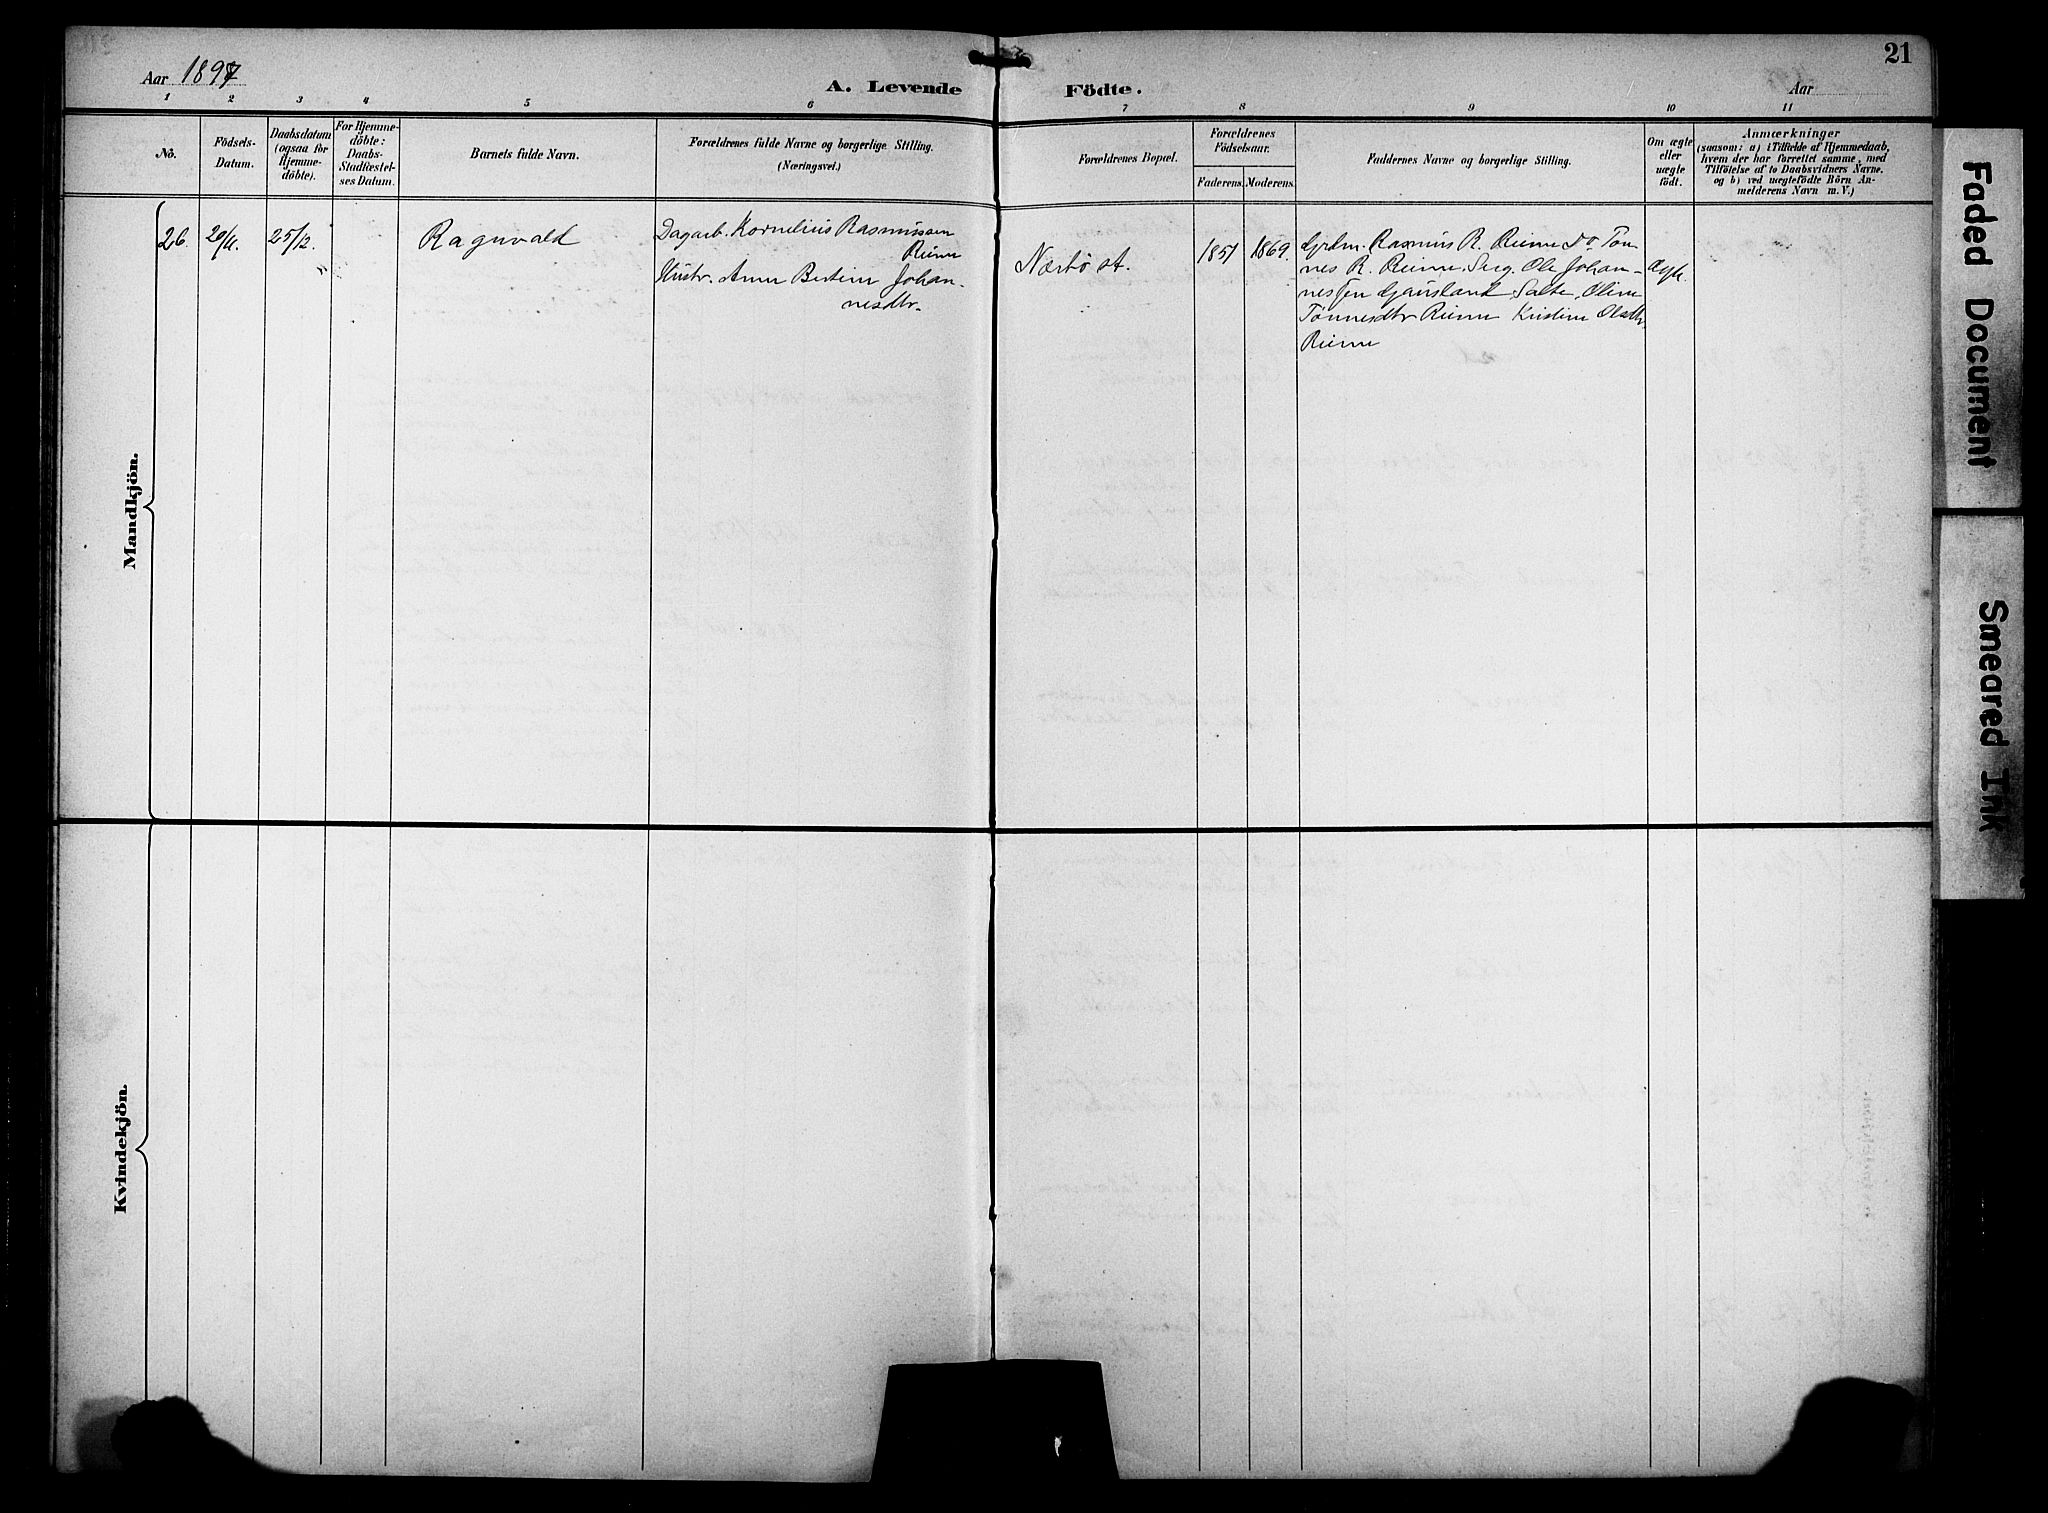 21
Aar 1897
A. Levende Födte.
Aar
1 2 3 4 5 6 7 8 9 10 11
No.
Födsels-
Datum.
Daabsdatum
(ogsaa for
Hjemme-
döbte).
For Hjemme-
döbte:
Daabs-
Stadfæstel-
ses Datum.
Barnets fulde Navn.
Forældrenes fulde Navne og borgerlige Stilling.
(Næringsvei.)
Forældrenes Bopæl.
Forældrenes
Födselsaar.
Faderens. Moderens.
Faddernes Navne og borgerlige Stilling.
Om ægte
eller
uægte
födt.
Anmærkninger
(saasom: a) i Tilfælde af Hjemmedaab,
hvem der har forrettet samme, med
Tilföielse af to Daabsvidners Navne.
og b) ved uægtefödte Börn An-
melderens Navn m. V.)
Mandkjön.
26. 25/12.
Ragnvald
Dagarb. Kornelius Rasmussen
Reime
Hustr. Anna Bertine Johan-
nesdtr.
Nærbö st.
1851 1869.
Grdm. Rasmus R. Reime Do Tön-
nes R. Reime. Serg. Ole Johan-
nessen Gausland Salte, Oline
Tönnesdtr Reime Kristine Olsdtr.
Reime
ægte.
Kvindekjön.
Faded Document
Smeared Ink